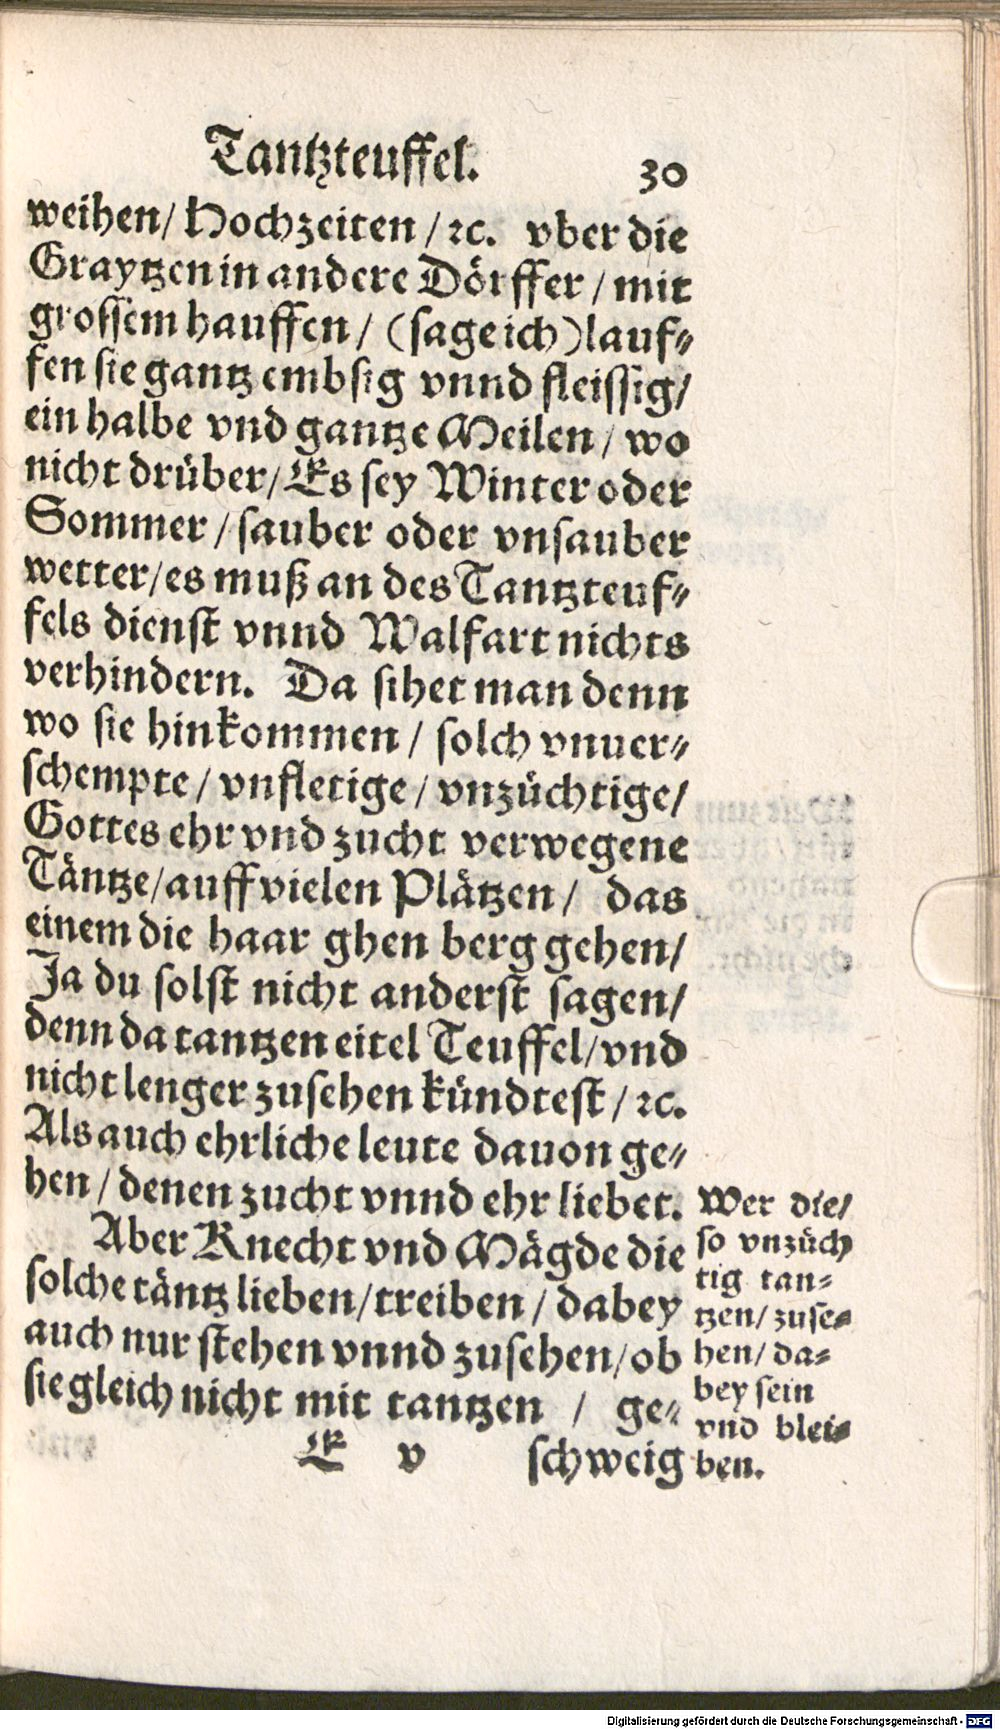 Tantzteuffel. 30
weihen/ Hochzeiten / ꝛc. vber die
Graytzen in andere Dörffer / mit
grossem hauffen / (sage ich) lauf⸗
fen sie gantz embsig vnnd fleissig/
ein halbe vnd gantze Meilen / wo
nicht drüber/ Es sey Winter oder
Sommer / sauber oder vnsauber
wetter/es muß an des Tantzteuf⸗
fels dienst vnnd Walfart nichts
verhindern. Da sihet man denn
wo sie hinkommen / solch vnuer⸗
schempte / vnfletige / vnzüchtige/
Gottes ehr vnd zucht verwegene
Täntze/auff vielen Plätzen / das
einem die haar ghen berg gehen/
Ja du solst nicht anderst sagen/
denn da tantzen eitel Teuffel/vnd
nicht lenger zusehen kündtest / ꝛc.
Als auch ehrliche leute dauon ge⸗
hen / denen zucht vnnd ehr liebet.
Aber Knecht vnd Mägde die
solche täntz lieben/treiben / dabey
auch nur stehen vnnd zusehen/ ob
sie gleich nicht mit tantzen / ge⸗
E v schweig
Wer die/
so vnzüch
tig tan⸗
tzen/ zuse⸗
hen/ da⸗
bey sein
vnd blei⸗
ben.
Digitalisierung gefördert durch die Deutsche Forschungsgemeinschaft - DFG